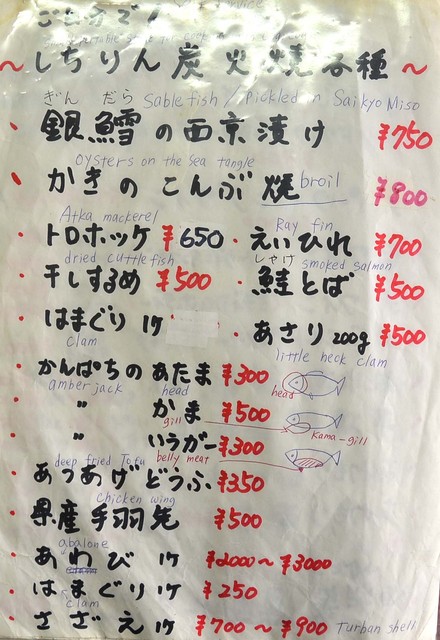 ～しちりん炭火焼各種～
ぎん だら Sable fish / Pickled in Saikyo Miso
・銀鱈の西京漬け ¥750
oysters on the sea tangle
・かきのこんぶ焼 broil ¥800
Atka mackerel
・トロホッケ ¥650
Ray fin
・えいひれ ¥700
dried cuttlefish
・干しするめ ¥500
しゃけ smoked salmon
・鮭とば ¥500
・はまぐり 1ケ
clam
・あさり 200g ¥500
little neck clam
・かんぱちの あたま ¥300
amber jack head head
・〃 かま ¥500
gill Kama-gill
・〃 いうガー ¥300
belly meat
deep fried Tofu
・あつあげどうふ ¥350
chicken wing
・県産手羽先 ¥500
abalone
・あわび 1ケ ¥2000～¥3000
・はまぐり 1ケ ¥250
clam
・さざえ 1ケ ¥700～¥900 Turban shell